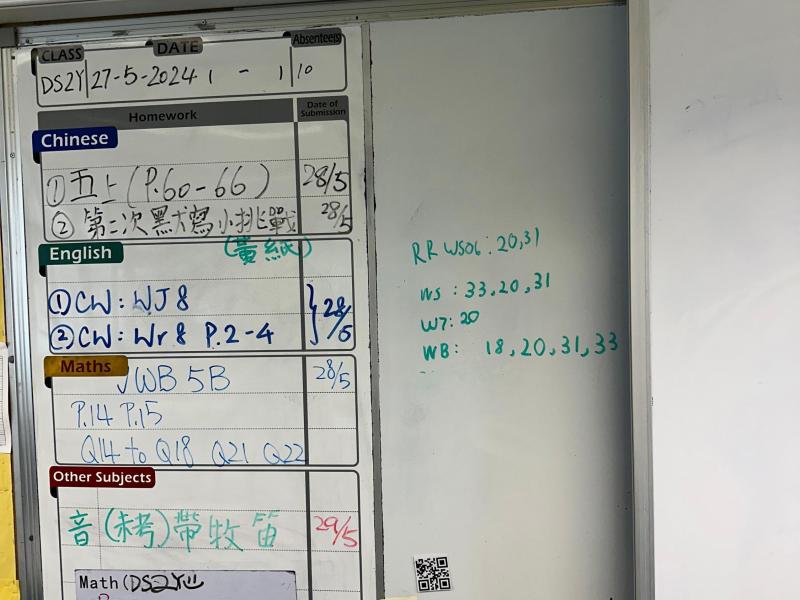 CLASS DATE Absentee(s)
DS2Y 27-5-2024 1 - 1 10
Homework Date of Submission
Chinese
① 五上 (P.60-66) 28/5
② 第二次默寫小挑戰 28/5
(黃紙)
English
① CW: WJ 8
② CW: Wr 8 P.2-4 } 28/5
Maths
√ WB 5B 28/5
P.14 P.15
Q14 to Q18 Q21 Q22
Other Subjects
音 (未考) 帶牧笛 29/5
Math (DS2Y)
RR WS06: 20,31
WS: 33,20,31
W7: 20
WB: 18,20,31,33